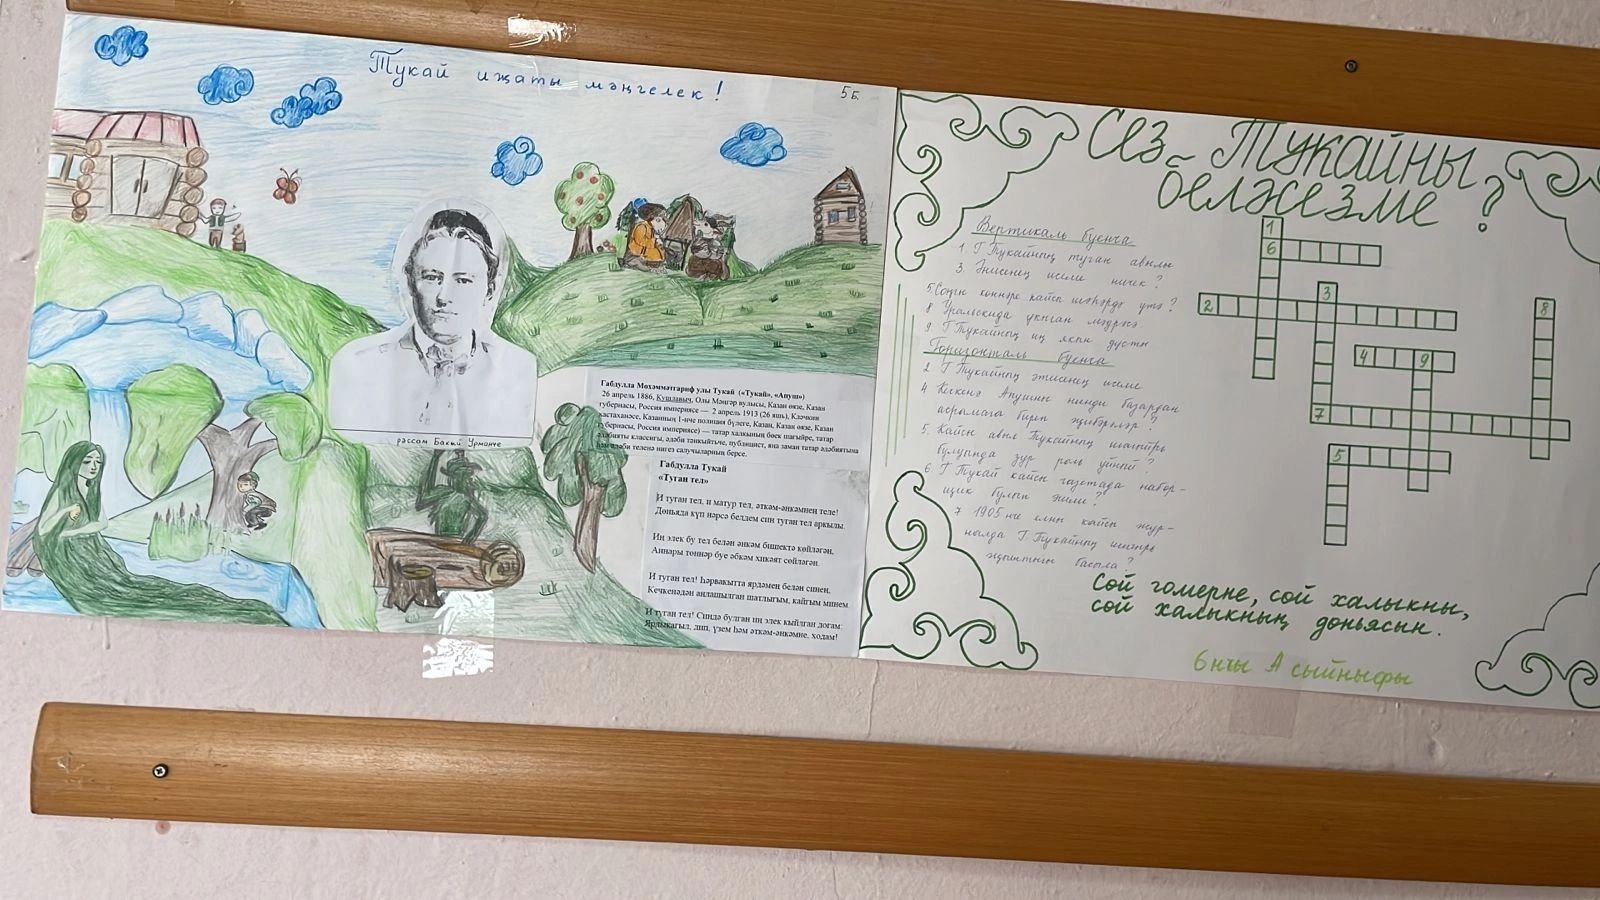 Тукай иҗаты мәңгелек!
5Б.
рәссам Бакый Урманче
Габдулла Мөхәммәтгариф улы Тукай («Тукай», «Апуш»)
26 апрель 1886, Кушлавыч, Олы Мәңгәр вулысы, Казан өязе, Казан
губернасы, Россия империясе — 2 апрель 1913 (26 яшь), Клячкин
хастаханәсе, Казанның 1-нче полиция бүлеге, Казан, Казан өязе, Казан
губернасы, Россия империясе) — татар халкының бөек шагыйре, татар
әдәбияты классигы, әдәби тәнкыйтьче, публицист, яңа заман татар әдәбиятына
һәм әдәби теленә нигез салучыларның берсе.
Габдулла Тукай
«Туган тел»
И туган тел, и матур тел, әткәм-әнкәмнең теле!
Дөньяда күп нәрсә белдем син туган тел аркылы.
Иң элек бу тел белән әнкәм бишектә көйләгән,
Аннары төннәр буе әбкәм хикәят сөйләгән.
И туган тел! Һәрвакытта ярдәмең белән синең,
Кечкенәдән аңлашылган шатлыгым, кайгым минем.
И туган тел! Синдә булган иң элек кыйлган догам:
Ярлыкагыл, дип, үзем һәм әткәм-әнкәмне, ходам!
Сез Тукайны
беләсезме ?
Вертикаль буенча
1. Г Тукайның туган авылы
3. Әнисенең исеме ничек ?
5. Соңгы көннәре кайсы шәһәрдә үтә ?
8 Уральскида укыган мәдрәсә
9. Г Тукайның иң якын дусты
Горизонталь буенча
2 Г Тукайның әтисенең исеме
4 Кескенә Апушны нинди базардан
асрамага биреп җибәрәләр ?
5. Кайсы авыл Тукайның шагыйрь
булуында зур роль уйный ?
6. Г Тукай кайсы газетада набор-
щик булып эшли ?
7 1905 нче елны кайсы жур-
налда Г Тукайның шигырь
басыла ?
1
6
2
3
8
4
9
7
5
Сөй гомерне, сөй халыкны,
сөй халыкның дөньясын.
6 нчы А сыйныфы